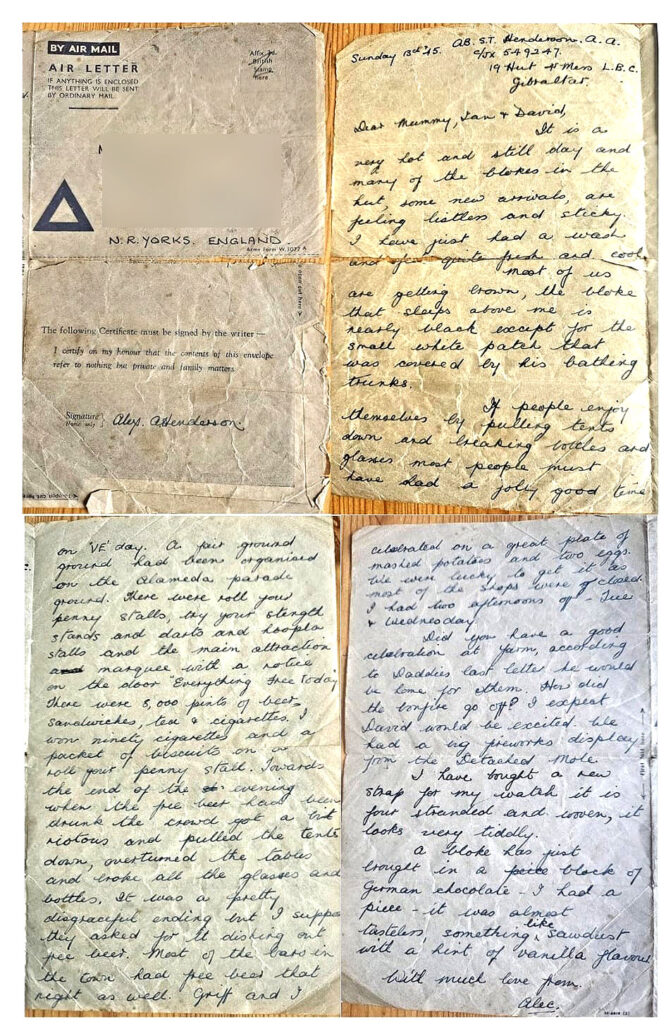 BY AIR MAIL
AIR LETTER
IF ANYTHING IS ENCLOSED
THIS LETTER WILL BE SENT
BY ORDINARY MAIL.
Affix
British
Stamp
Here
N.R. YORKS. ENGLAND
Army Form W.3077 A
The following Certificate must be signed by the writer—
I certify on my honour that the contents of this envelope
refer to nothing but private and family matters.
Signature
(Name only)
Alex. A Henderson.
Sunday 13th '45. AB. S.T. Henderson. A. A.
C/JX 549247.
19 Hut 4 Mess L.B.C.
Gibraltar.
Dear Mummy, Ian & David,
It is a
very hot and still day and
many of the blokes in the
hut, some new arrivals, are
feeling listless and sticky.
I have just had a wash
and feel quite fresh and cool
most of us
are getting brown, the bloke
that sleeps above me is
nearly black except for the
small white patch that
was covered by his bathing
trunks.
If people enjoy
themselves by pulling tents
down and breaking bottles and
glasses most people must
have had a jolly good time
on 'VE' day. A fair ground
ground had been organised
on the Alameda parade
ground. There were roll your
penny stalls, try your stength
stands and darts and hoopla
stalls and the main attraction
marquee with a notice
on the door "Everything Free Today
There were 8,000 pints of beer,
sandwiches, tea & cigarettes. I
won ninety cigarettes and a
packet of biscuits on a
roll your penny stall. Towards
the end of the evening
when the free beer had been
drunk the crowd got a bit
riotous and pulled the tents
down, overturned the tables
and broke all the glasses and
bottles. It was a pretty
disgraceful ending but I suppose
they asked for it dishing out
free beer. Most of the bars in
the town had free beer that
night as well. Griff and I
celebrated on a great plate of
mashed potatoes and two eggs.
We were lucky to get it as
most of the shops were closed.
I had two afternoons of - Tue
& Wednesday.
Did you have a good
celebration at Yarm, according
to Daddies last letter he would
be home for them. How did
the bonfire go off? I expect
David would be excited. We
had a big fireworks display
from the Detached Mole.
I have bought a new
strap for my watch it is
four stranded and woven, it
looks very tiddly.
A bloke has just
brought in a piece block of
German chocolate - I had a
piece - it was almost
tasteless, something like sawdust
with a hint of vanilla flavour
With much love from
Alec.